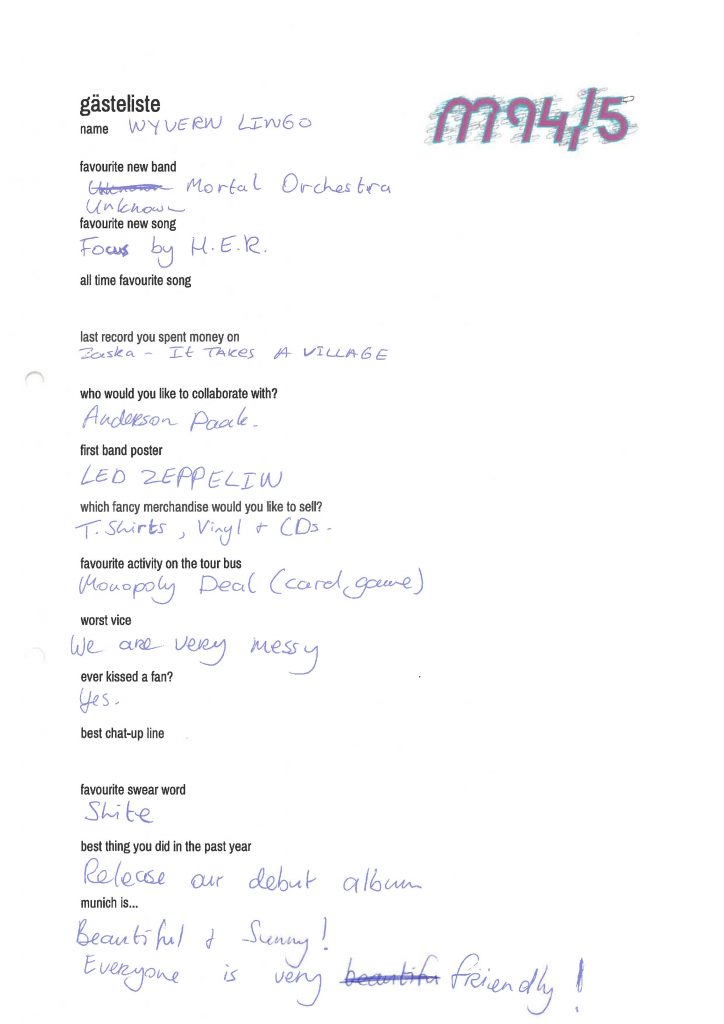 gästeliste
M94/5
name WYVERN LINGO
favourite new band
Unknown Mortal Orchestra
Unknown
favourite new song
Focus by H.E.R.
all time favourite song
last record you spent money on
Zaska - IT TAKES A VILLAGE
who would you like to collaborate with?
Anderson Paak.
first band poster
LED ZEPPELIN
which fancy merchandise would you like to sell?
T.Shirts, Vinyl + CDs.
favourite activity on the tour bus
Monopoly Deal (card game)
worst vice
We are very messy
ever kissed a fan?
Yes.
best chat-up line
favourite swear word
Shite
best thing you did in the past year
Release our debut album
munich is...
Beautiful & Sunny!
Everyone is very beautiful friendly!